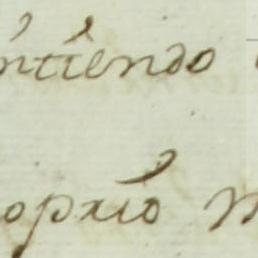 ntiendo
opxio